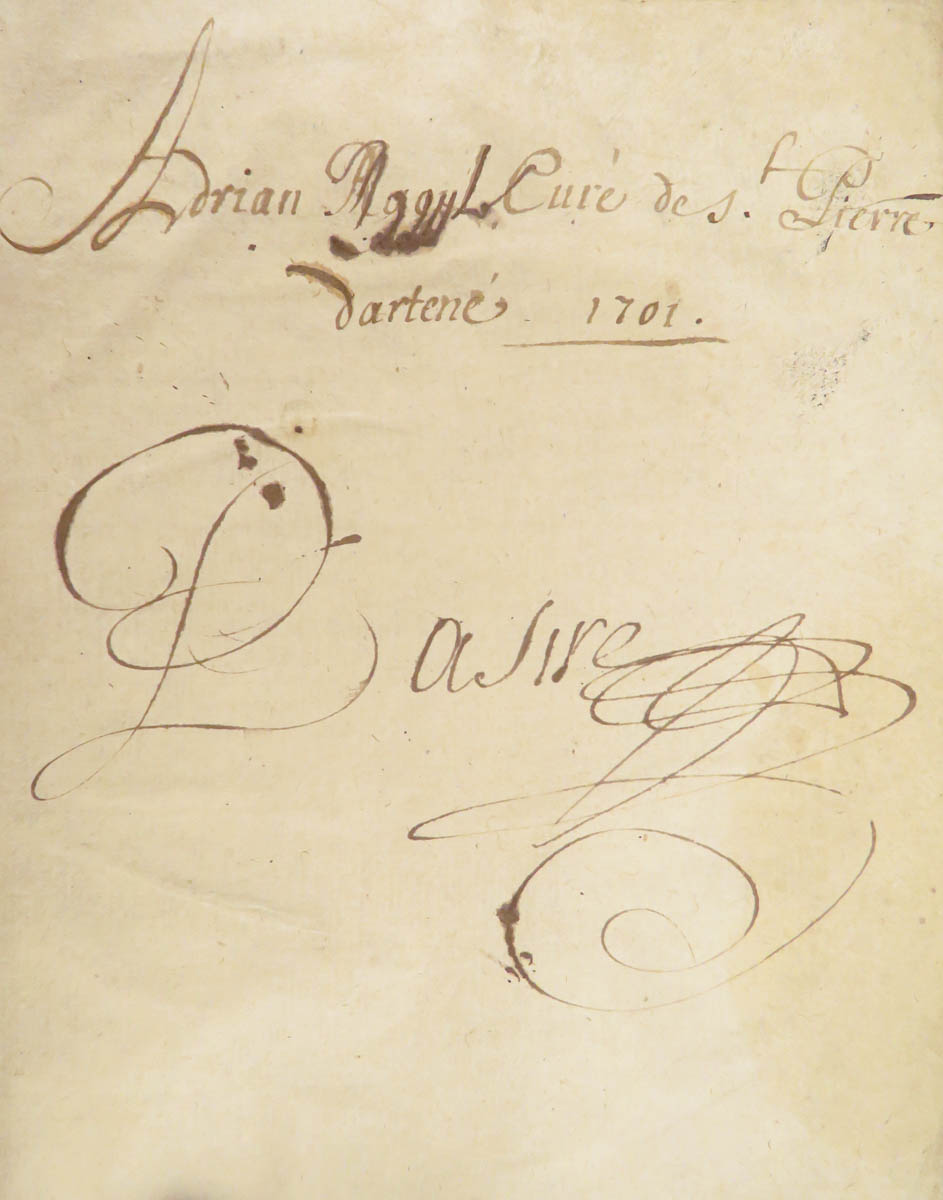 Adrian Curé de St. Pierre
dartené 1701.
Dasire